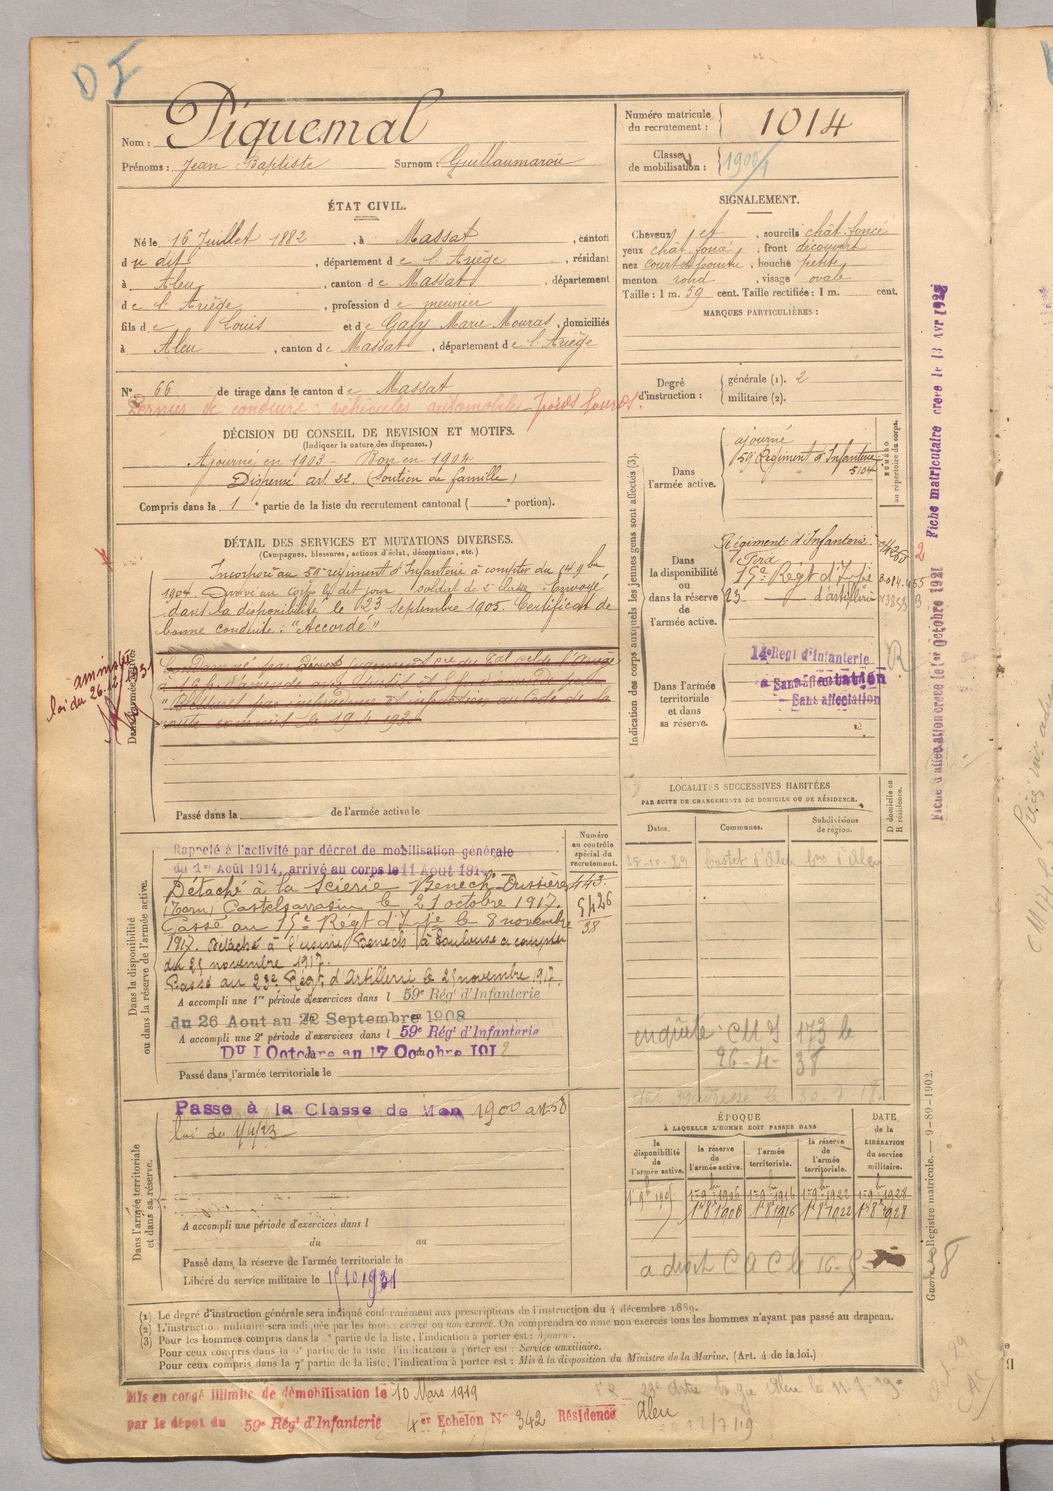 DI
Nom : Piquemal
Prénoms : Jean Baptiste Surnom : Guillaumarou
Numéro matricule du recrutement : 1014
Classe de mobilisation : 1900
ÉTAT CIVIL.
Né le 16 Juillet 1882, à Massat, canton
du dit, département de l'Ariège, résidant
à Aleu, canton de Massat, département
de l'Ariège, profession de meunier
fils de Louis et de Galy Marie Mouras, domiciliés
à Aleu, canton de Massat, département de l'Ariège
N° 66 de tirage dans le canton de Massat
Permis de conduire véhicules automobiles poids lourds.
SIGNALEMENT.
Cheveux et, sourcils chât. foncé
yeux chât. foncé, front découvert
nez court et pointu, bouche petite
menton rond, visage ovale
Taille : 1 m. 59 cent. Taille rectifiée : 1 m. cent.
MARQUES PARTICULIÈRES :
Degré d'instruction : générale (1). 2
militaire (2).
DÉCISION DU CONSEIL DE REVISION ET MOTIFS.
(Indiquer la nature des dispenses.)
Ajourné en 1903 - Bon en 1904
Dispensé art. 22. (soutien de famille)
Compris dans la 1e partie de la liste du recrutement cantonal ( e portion).
DÉTAIL DES SERVICES ET MUTATIONS DIVERSES.
(Campagnes, blessures, actions d'éclat, décorations, etc.)
Incorporé au 59e régiment d'Infanterie à compter du 14 9bre
1904. Arrivé au corps le dit jour soldat de 2e classe. Envoyé
dans la disponibilité le 23 Septembre 1905. Certificat de
bonne conduite : "Accordé"
amnistié
loi du 26.12.1931
Dans l'armée active.
Passé dans la de l'armée active le
Indication des corps auxquels les jeunes gens sont affectés (3).
NUMÉRO au répertoire du corps.
Dans l'armée active.
ajourné
59e Régiment d'Infanterie
5104
Dans la disponibilité ou dans la réserve de l'armée active.
Régiment d'Infanterie
Foix
15e Régt d'Infie
23 d'artillerie
Dans l'armée territoriale et dans sa réserve.
14e Régt d'Infanterie
Sans affectation
Sans affectation
R
Fiche d'affectation créée le 1er Octobre 1921
Fiche matriculaire créée le 13 Avr 1928
LOCALITÉS SUCCESSIVES HABITÉES
PAR SUITE DE CHANGEMENTS DE DOMICILE OU DE RÉSIDENCE.
Dates. Communes. Subdivisions de région. D domicile ou R résidence.
Castet d'Aleu
enquête CMI 173 le
26-4-38
Dans la disponibilité ou dans la réserve de l'armée active.
Numéro au contrôle spécial du recrutement.
Rappelé à l'activité par décret de mobilisation générale
du 1er Août 1914, arrivé au corps le 11 Août 1914
Détaché à la Scierie Benech Bussière
(Tarn) Castelsarrasin le 21 octobre 1917.
Passé au 15e Régt d'Infie le 8 novembre
1917. Détaché à l'usine Benech à Toulouse à compter
du 25 novembre 1917.
Passé au 23e Régt d'Artillerie le 25 novembre 1917.
443
5426
38
A accompli une 1re période d'exercices dans l 59e Régt d'Infanterie
du 26 Aout au 22 Septembre 1908
A accompli une 2e période d'exercices dans l 59e Régt d'Infanterie
Du 1 Octobre au 17 Octobre 1912
Passé dans l'armée territoriale le
Dans l'armée territoriale et dans sa réserve.
Passé à la Classe de Mon 1900 art 58
loi du 1/4/23
A accompli une période d'exercices dans l
du au
Passé dans la réserve de l'armée territoriale le
Libéré du service militaire le 15 10 1931
ÉPOQUE
À LAQUELLE L'HOMME DOIT PASSER DANS
la disponibilité de l'armée active. la réserve de l'armée active. l'armée territoriale. la réserve de l'armée territoriale. DATE de la LIBÉRATION du service militaire.
1er 9bre 1905 1er 9bre 1906 1er 9bre 1916 1er 9bre 1922 1er 9bre 1928
1er 8bre 1906 1er 8bre 1916 1er 8bre 1922 1er 8bre 1928
a droit C A C le 16-5-
Guerre. Registre matricule. — 9-89-1902.
(1) Le degré d'instruction générale sera indiqué conformément aux prescriptions de l'instruction du 4 décembre 1889.
(2) L'instruction militaire sera indiquée par les mots : exercé ou non exercé. On comprendra comme non exercés tous les hommes n'ayant pas passé au drapeau.
(3) Pour les hommes compris dans la e partie de la liste, l'indication à porter est : Ajourné.
Pour ceux compris dans la 6e partie de la liste, l'indication à porter est : Service auxiliaire.
Pour ceux compris dans la 7e partie de la liste, l'indication à porter est : Mis à la disposition du Ministre de la Marine. (Art. 4 de la loi.)
Mis en congé illimité de démobilisation le 10 Mars 1919
par le dépôt du 59e Régt d'Infanterie 4er Echelon N° 342 Résidence Aleu